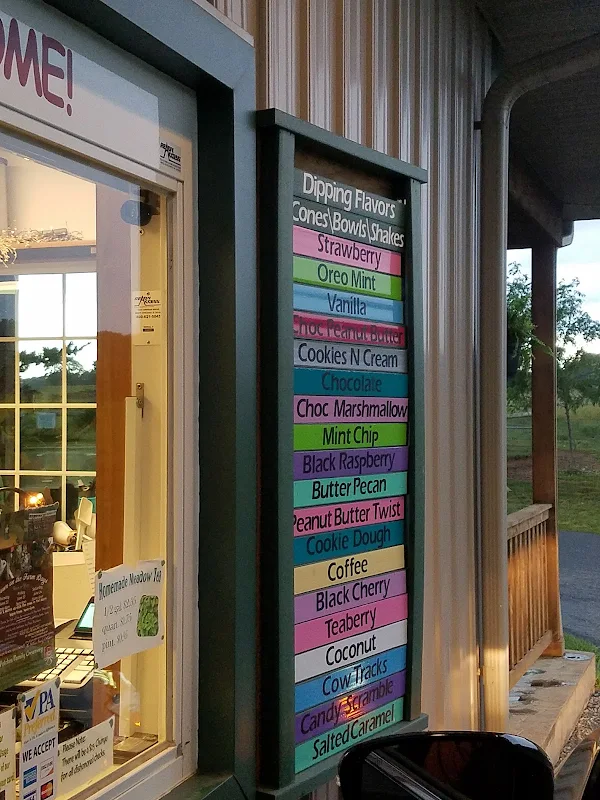 OME!
READY ACCESS
READY ACCESS
Dipping Flavors
Cones\Bowls\Shakes
Strawberry
Oreo Mint
Vanilla
Choc Peanut Butter
Cookies N Cream
Chocolate
Choc Marshmallow
Mint Chip
Black Raspberry
Butter Pecan
Peanut Butter Twist
Cookie Dough
Coffee
Black Cherry
Teaberry
Coconut
Cow Tracks
Candy Scramble
Salted Caramel
Homemade Meadow Tea
PA
WE ACCEPT
Please Note:
There will be a 50¢ Charge
for all dishonored checks